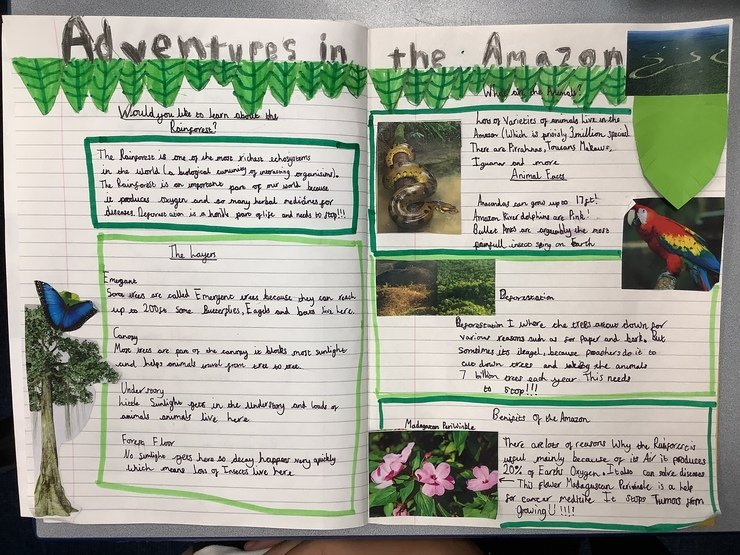 Adventures in the Amazon
Would you like to learn about the
Rainforest?
The Rainforest is one of the most richest echosystems
in the world (a biological community of interesting organisms).
The Rainforest is an important part of our world because
it produces oxygen and so many herbal medicines for
diseases. Deforestation is a horrible part of life and needs to stop!!!
The Layers
Emergant
Some trees are called Emergent trees because they can reach
up to 200ft some. Butterflies, Eagels and bats live here.
Canopy
Most trees are part of the canopy it blocks most sunlight
and helps animals travel from tree to tree.
Understory
Little Sunlight gets in the Understory and loads of
animals animals live here.
Forest Floor
No sunlight gets here so decay happens very quickly
which means lots of Insects live here.
What are the Animals?
Lots of Varieties of animals live in the
Amazon (Which is 3million species)
There are Pirrahnas, Toucans Makaws,
Iguanas and more.
Animal Facts
Anacondas can grow up to 17ft!
Amazon River dolphins are Pink!
Bullet Ants are arguably the most
painfull insect sting on Earth
Deforestation
Deforestation I where the trees are cut down for
various reasons such as for Paper and bark. But
Sometimes its ileagel, because poachers do it to
cut down trees and taking the animals
7 billion trees each year This needs
to stop!!!
Benifits of the Amazon
Madagascan Periwinkle
There are lots of reasons Why the Rainforest is
useful mainly because of its Air it produces
20% of Earths Oxygen. It also can solve diseases
This flower Madagascan Periwinkle is a help
for cancer medicine It stops Tumors from
growing U !!!!